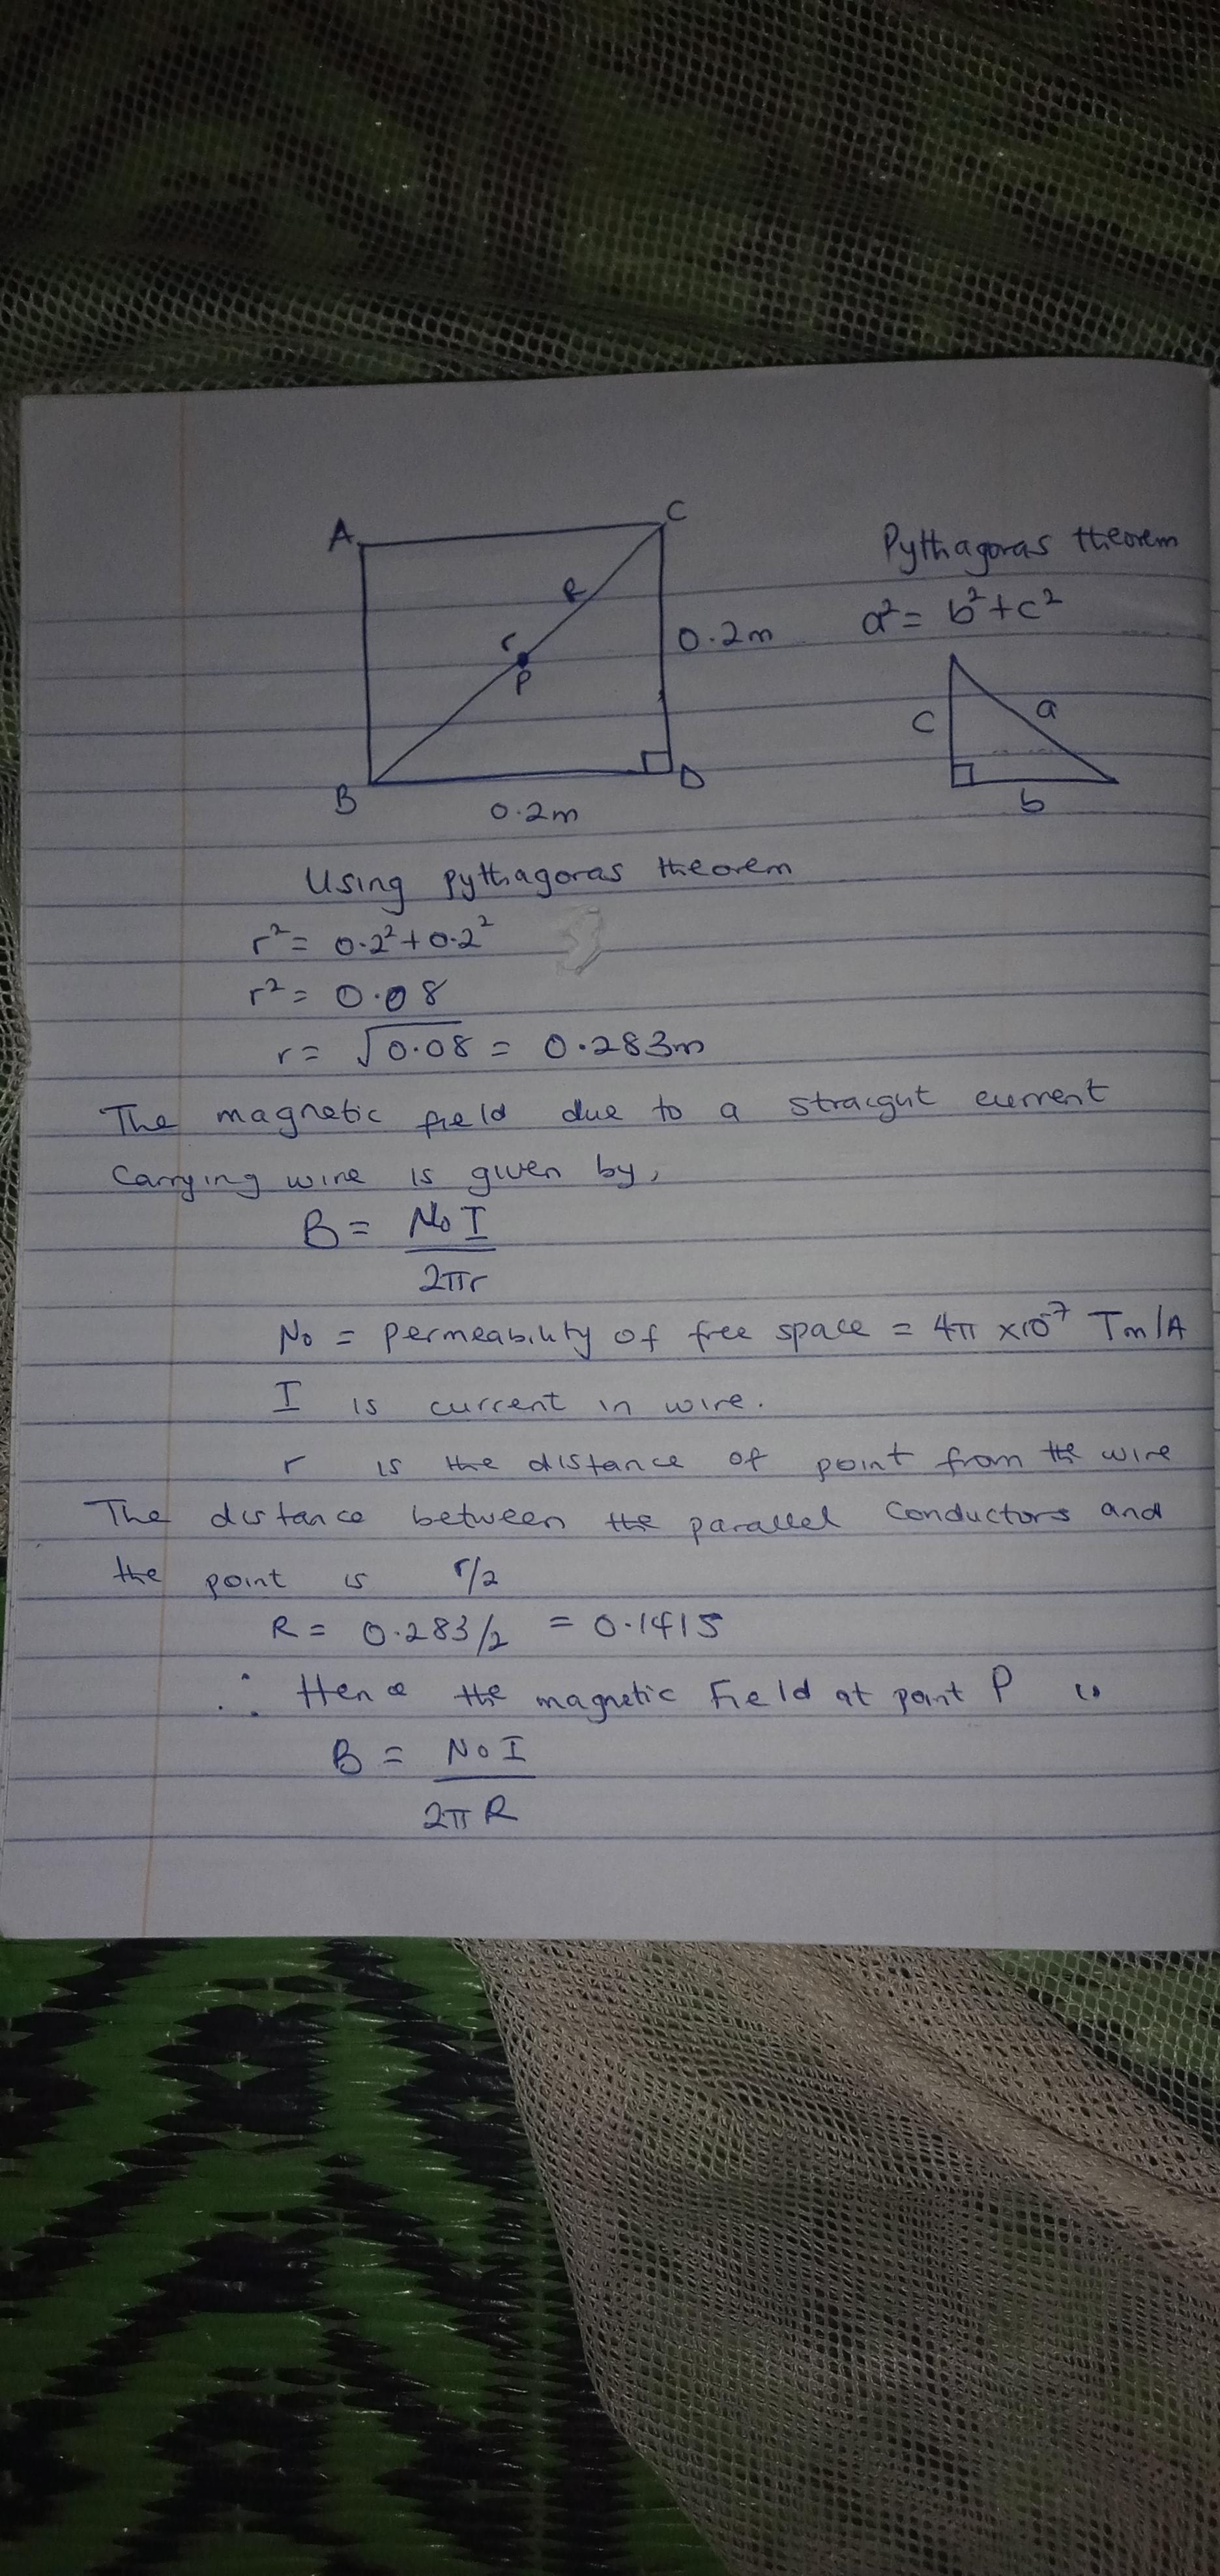 A
C
Pythagoras theorem
a² = b² + c²
R
r
P
0.2m
c
a
B
D
b
0.2m
Using pythagoras theorem
r² = 0.2² + 0.2²
r² = 0.08
r = √0.08 = 0.283m
The magnetic field due to a straigut current
Carrying wire is given by,
B = NoI
2πr
No = permeability of free space = 4π ×10⁻⁷ Tm/A
I is current in wire.
r is the distance of point from the wire
The distance between the parallel Conductors and
the point is r/2
R = 0.283/2 = 0.1415
∴ Hence the magnetic Field at point P is
B = NoI
2πR